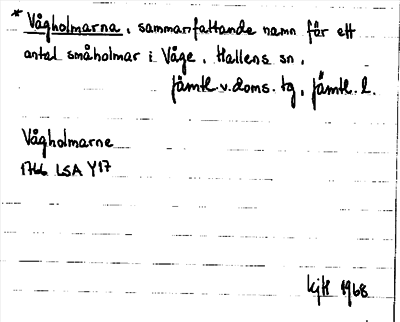 * Vågholmarna, sammanfattande namn för ett
antal småholmar i Våge, Hallens sn,
Jämtl. v. doms. tg, Jämtl. l.
Vågholmarne
1766 LSA Y17
1968